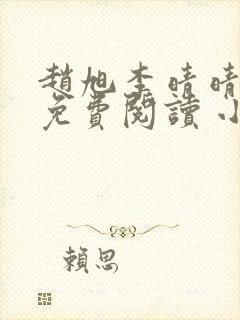 趙旭李晴晴
免費閱讀小
賴思